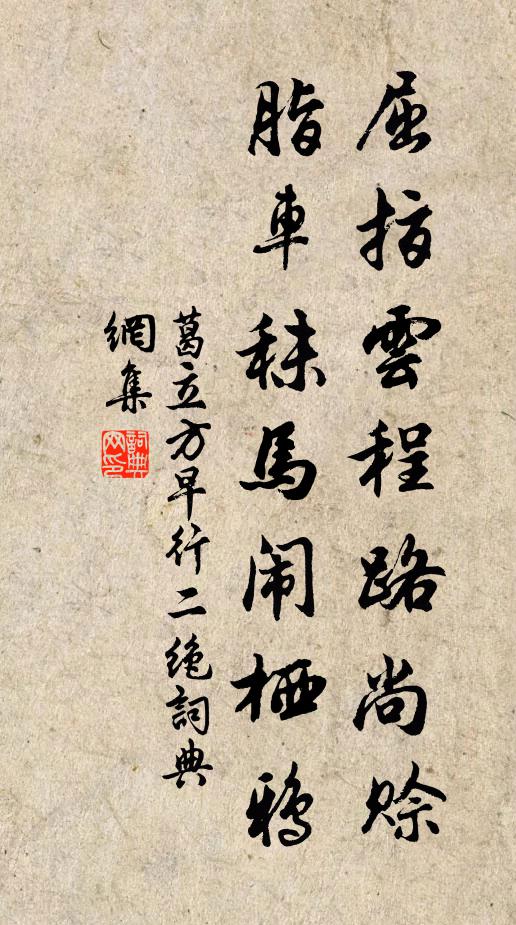 屈指雲程路尚賒
脂車秣馬闹栖鴉
葛立方早行二絶詞典
網集
詞典网印